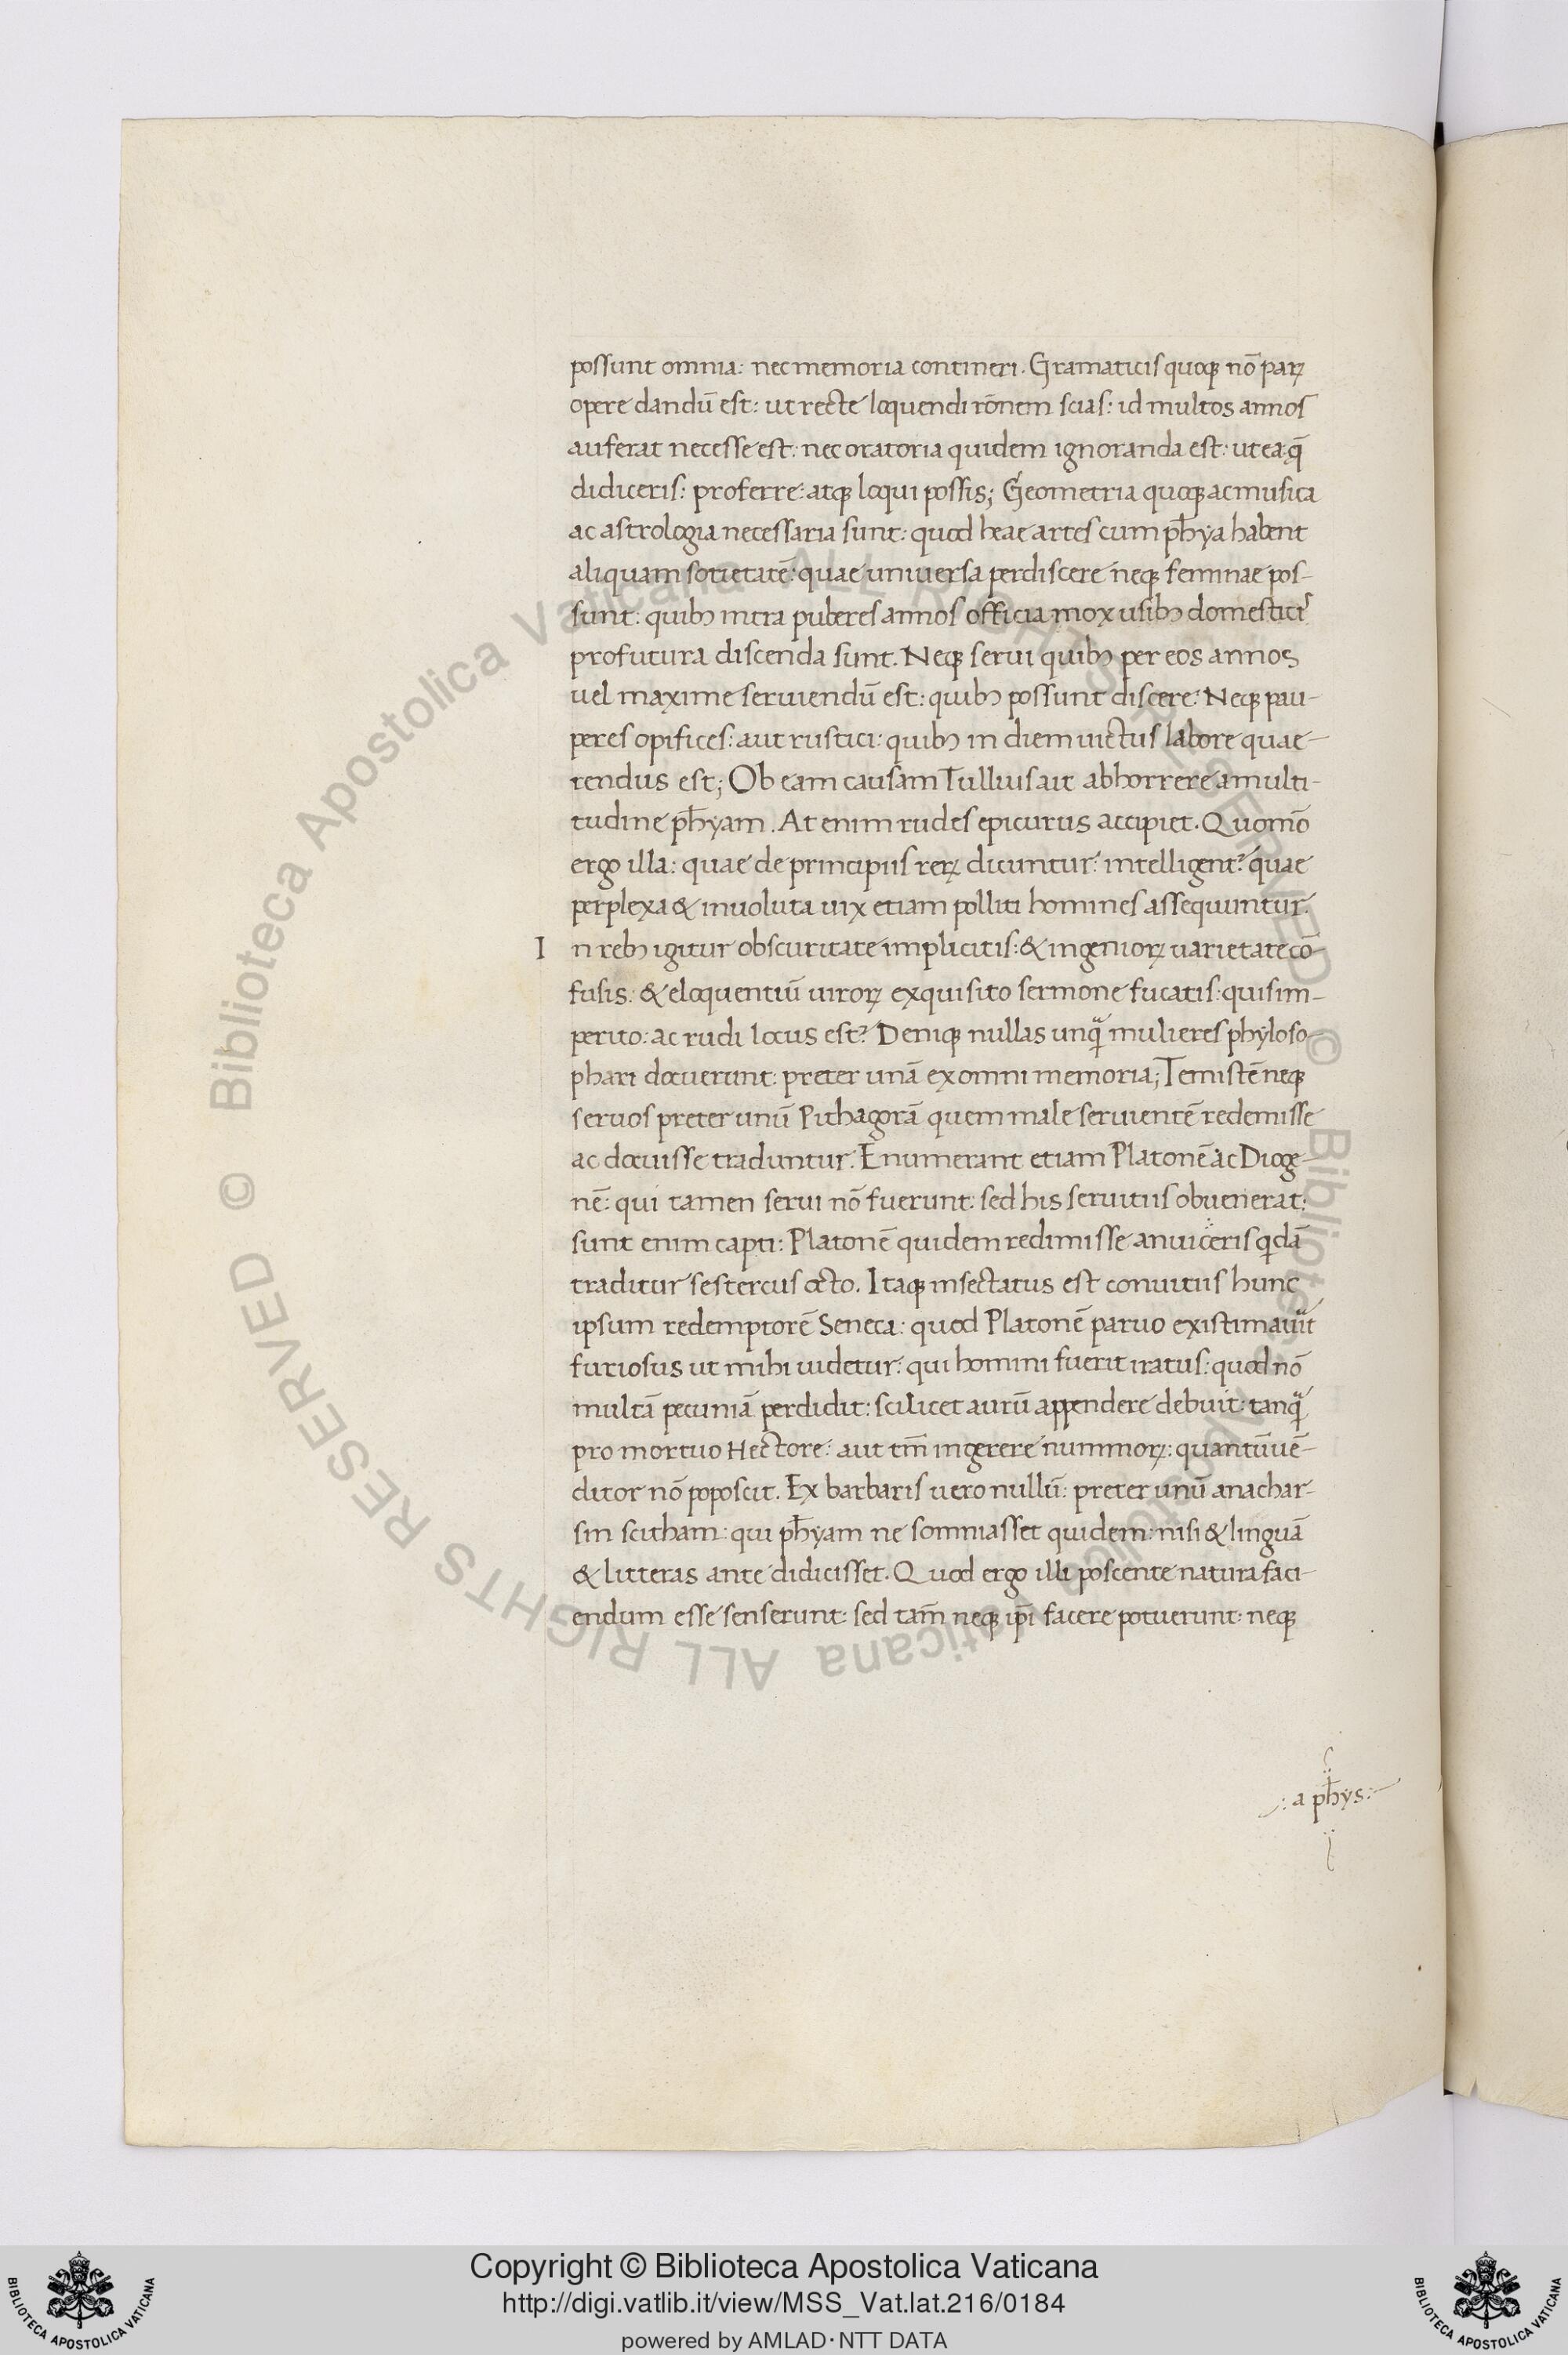 possunt omnia: nec memoria contineri. Gramaticis quoqꝫ nō paꝝ
opere dandū est: ut recte loquendi rōnem scias: id multos annos
auferat necesse est: nec oratoria quidem ignoranda est: ut ea: q̄
didiceris: proferre: atqꝫ loqui possis; Geometria quoqꝫ ac musica
ac astrologia necessaria sunt: quod heae artes cum ph̄ya habent
aliquam sotietatē: quae universa perdiscere neqꝫ feminae pos-
sunt: quibꝫ intra puberes annos officia mox usibꝫ domestici'
profutura discenda sunt. Neqꝫ serui quibꝫ per eos annos
uel maxime seruiendū est: quibꝫ possunt discere: Neqꝫ pau-
peres opifices: aut rustici: quibꝫ in diem uictus labore quae-
rendus est; Ob eam causam Tullius ait abhorrere a multi-
tudine ph̄yam. At enim rudes epicurus accipiet. Quomō
ergo illa: quae de principiis reꝝ dicuntur: intelligent? quae
perplexa & inuoluta uix etiam polliti homines assequuntur.
In rebꝫ igitur obscuritate implicitis: & ingenioꝝ uarietate cō-
fusis: & eloquentiū uiroꝝ exquisito sermone fucatis: quis im-
perito: ac rudi locus est? Deniqꝫ nullas unqᷓ mulieres phyloso-
phari docuerunt: preter unā ex omni memoria; Temistē neqꝫ
seruos preter unū Pithagorā quem male seruientē redemisse
ac docuisse traduntur. Enumerant etiam Platonē ac Dioge-
nē: qui tamen serui nō fuerunt: sed his seruitus obuenerat:
sunt enim capti: Platonē quidem redimisse anuiceris qdā
traditur sestercus octo. Itaqꝫ insectatus est conuitiis hunc
ipsum redemptorē Seneca: quod Platonē paruo existimauit
furiosus ut mihi uidetur: qui homini fuerit iratus: quod nō
multā pecuniā perdidit: scilicet aurū appendere debuit: tanqᷓ
pro mortuo Hectore: aut tm̄ ingerere nummoꝝ: quantū uē-
ditor nō poposcit. Ex barbaris uero nullū: preter unū anachar-
sin scitham: qui ph̄yam ne somniasset quidem: nisi & linguā
& litteras ante didicisset. Quod ergo illi poscente natura faci-
endum esse senserunt: sed tam̄ neqꝫ ip̄i facere potuerunt: neqꝫ
:a ph̄ys:
© Biblioteca Apostolica Vaticana ALL RIGHTS RESERVED © Biblioteca Apostolica Vaticana ALL RIGHTS RESERVED
Copyright © Biblioteca Apostolica Vaticana
http://digi.vatlib.it/view/MSS_Vat.lat.216/0184
powered by AMLAD·NTT DATA
BIBLIOTECA APOSTOLICA VATICANA
BIBLIOTECA APOSTOLICA VATICANA